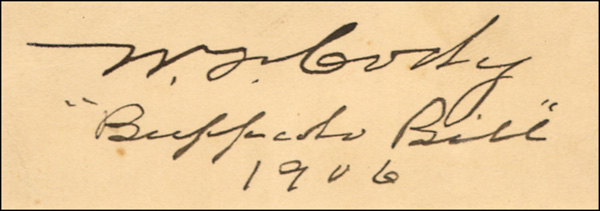 W. F. Cody
"Buffalo Bill"
1906